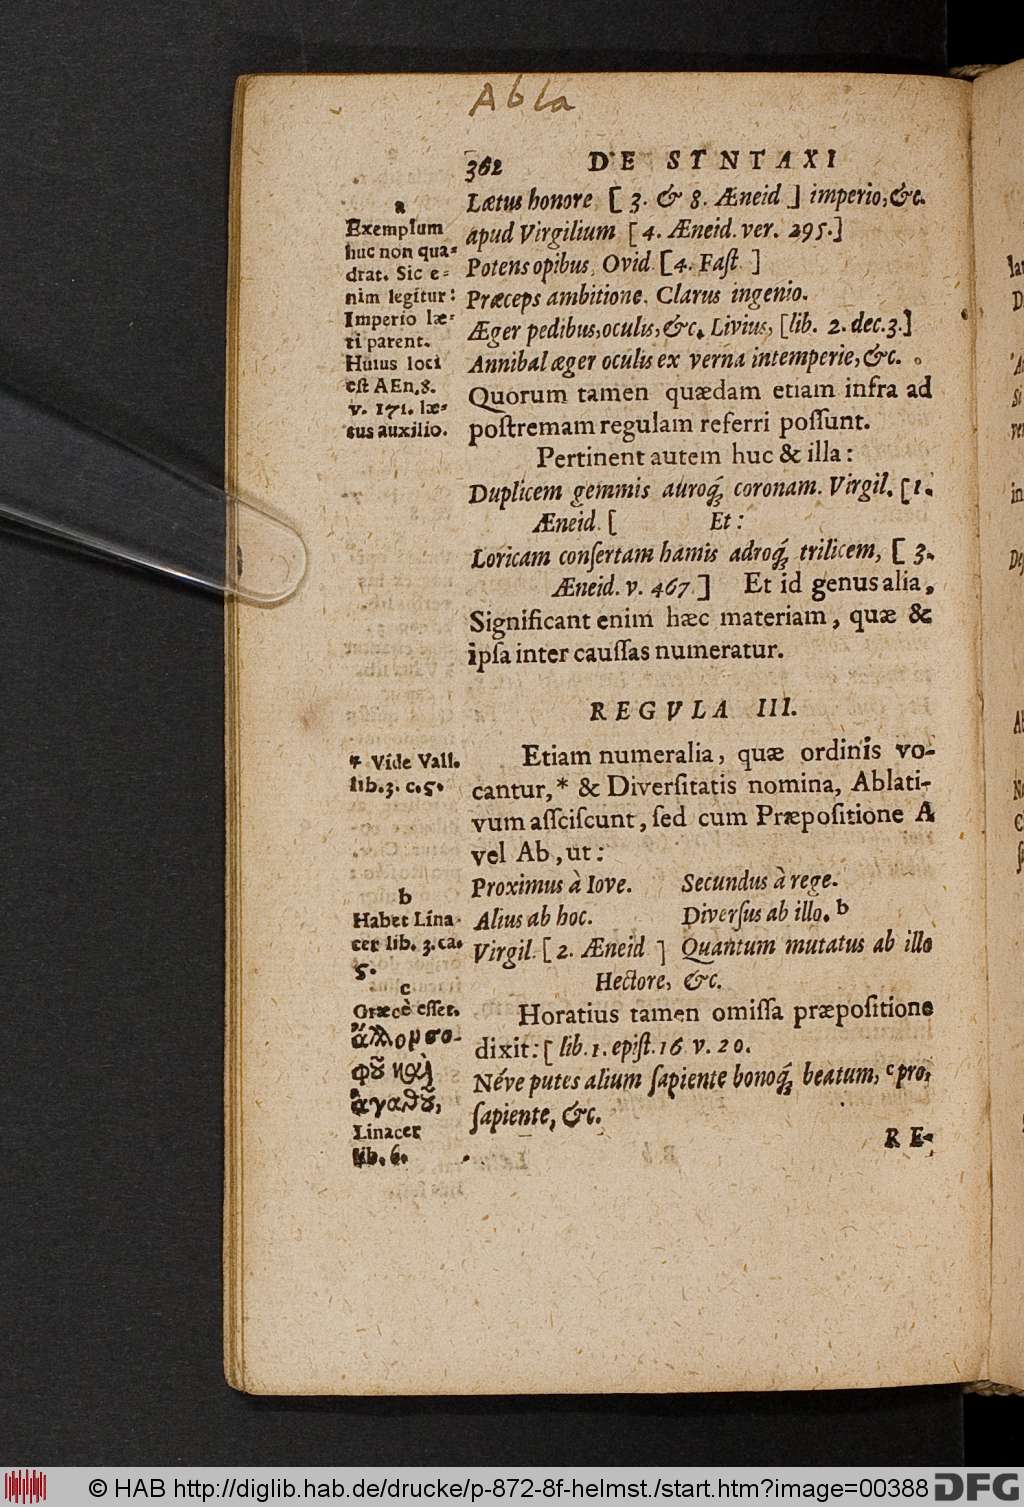 Abla
362 DE SYNTAXI
Lætus honore [ 3. & 8. Æneid ] imperio, &c.
apud Virgilium [ 4. Æneid. ver. 295. ]
Potens opibus, Ovid. [ 4. Fast. ]
Præceps ambitione. Clarus ingenio.
Æger pedibus, oculis, &c. Livius, [lib. 2. dec. 3.]
Annibal æger oculis ex verna intemperie, &c.
Quorum tamen quædam etiam infra ad
postremam regulam referri possunt.
Pertinent autem huc & illa:
Duplicem gemmis auroq́; coronam. Virgil. [ 1.
Æneid. [ Et:
Loricam consertam hamis adroq́; trilicem, [ 3.
Æneid. v. 467 ] Et id genus alia,
Significant enim hæc materiam, quæ &
ipsa inter caussas numeratur.
a
Exemplum
huc non qua-
drat. Sic e-
nim legitur:
Imperio læ-
ti parent.
Huius loci
est AEn. 8.
v. 171. læ-
tus auxilio.
REGVLA III.
Etiam numeralia, quæ ordinis vo-
cantur, * & Diversitatis nomina, Ablati-
vum assciscunt, sed cum Præpositione A
vel Ab, ut:
Proximus à Iove. Secundus à rege.
Alius ab hoc. Diversus ab illo. b
Virgil. [ 2. Æneid ] Quantum mutatus ab illo
Hectore, &c.
Horatius tamen omissa præpositione
dixit: [ lib. 1. epist. 16 v. 20.
Néve putes alium sapiente bonoq́; beatum, c pro,
sapiente, &c.
RE-
* Vide Vall.
lib. 3. c. 5.
b
Habet Lina-
cer lib. 3. ca.
5.
c
Græcè esset,
ἄλλον σο-
φοῦ καὶ
ἀγαθοῦ,
Linacer
lib. 6.
© HAB http://diglib.hab.de/drucke/p-872-8f-helmst./start.htm?image=00388
DFG